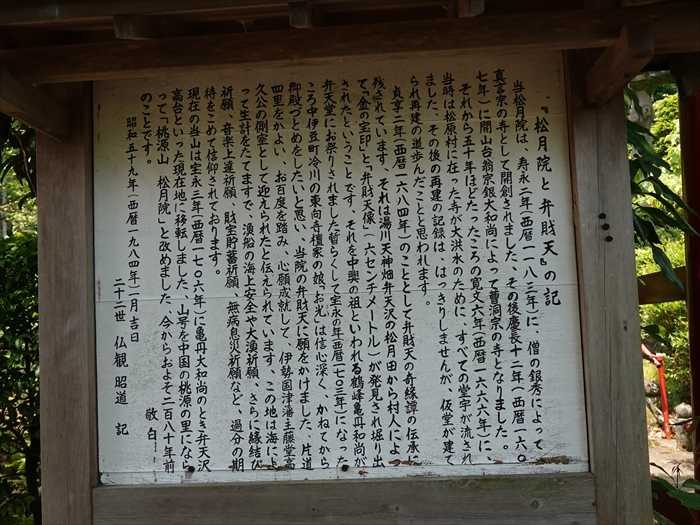 『松月院と弁財天』の記
当松月院は、寿永二年(西暦一一八三年)に、僧の銀秀によって
真言宗の寺として開創されました。その後慶長十二年(西暦一六〇
七年)に開山台翁宗銀大和尚によって曹洞宗の寺となりました。
それから五十年ほどたったころの寛文六年(西暦一六六六年)に、
当時は松原村に在った寺が大洪水のために、すべての堂宇が流され
ました、その後の再建の記録は、はっきりしませんが、仮堂が建て
られ再建の道歩んだことと思われます。
貞享二年(西暦一六八四年)のこととして弁財天の奇縁譚の伝承に
残されています、それは湯川天神畑弁天沢の松月田から村人によっ
て『金の宝印』と『弁財天像』(六センチメートル)が発見され堀り出
されたということです。それを中興の祖といわれる鶴峰亀丹和尚が
弁天堂にお祭りされました暫らくして宝永の年(西暦一七〇三年)になった
ころ中伊豆町冷川の東向寺檀家の娘『お光』は信心深く、かねてから
御殿づとめをしたいと思い、当院の弁財天に願をかけました、片道
四里をかよい、お百度を踏み、心願成就して、伊勢国津藩主藤堂高
久公の側室として迎えられたと伝えられています、この地は海によ
って生計をたてますで、漁船の海上安全や大漁祈願、さらに縁結び
祈願、音楽上達祈願、財宝貯蓄祈願、無病息災祈願など、過分の期
待をこめて信仰されております。
現在の当山は宝永三年(西暦一七〇六年)に亀丹大和尚のとき弁天沢
高台といった現在地に移転しました、山号を中国の桃源の里になら
って「桃源山 松月院」と改めました、今からおよそ二百八十年前
のことです。
敬白
昭和五十九年(西暦一九八四年)一月吉日
二十二世 仏観 昭道 記